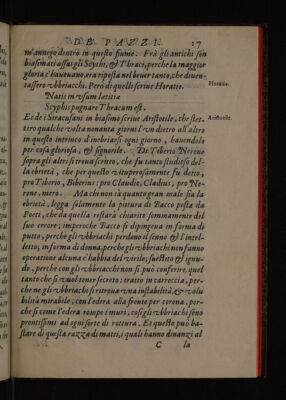 DE PAZZI. 17
m'annego dentro in questo fiume. Frà gli antichi son
biasimati assai gli Scythi, & Thraci, perche la maggior
gloria c'haueuano, era riposta nel beuer tanto, che diuen-
tassero vbbriachi. Però di quelli scriue Horatio.
Horatio.
Natis in vsum lætitiæ
Scyphis pugnare Thracum est.
Et de i Siracusani in biasimo scriue Aristotile, che stet-
Aristotile.
tero qualche volta nonanta giorni l'vn dietro all'altro
in questo intrinco d'inebriarsi ogni giorno, hauendola
per cosa gloriosa, & signorile. Di Tiberio Nerone
sopra gli altri si troua scritto, che fu tanto studioso del-
la ebrietà, che per questo vituperosamente fu detto,
pro Tiberio, Biberius: pro Claudio, Cladius, pro Ne-
rone, mero. Ma chi non sà quanto gran male sia la
ebrietà, legga solamente la pittura di Bacco posta da
Poeti, che da quella restarà chiarito sommamente del
suo errore; imperoche Bacco si dipingeua in forma di
putto, perche gli vbbriachi perdono il senno & l'intel-
letto; in forma di donna, perche gli vbbriachi non fanno
operatione alcuna c'habbia del virile; suestito & ignu-
do, perche con gli vbbriacchi non si può conferire, quel
tanto che si vuol tener secreto: tratto in carreccia, per-
che ne gli vbbriachi si ritroua vna instabilità, & volu
bilità mirabile, con l'edera alla fronte per corona, per-
che sì come l'edera rompe i muri, così gli vbbriachi sono
prontissimi ad ogni sorte di rottura. Et questo può ba-
stare di questa razza di matti, i quali hanno dinanzi al
C la